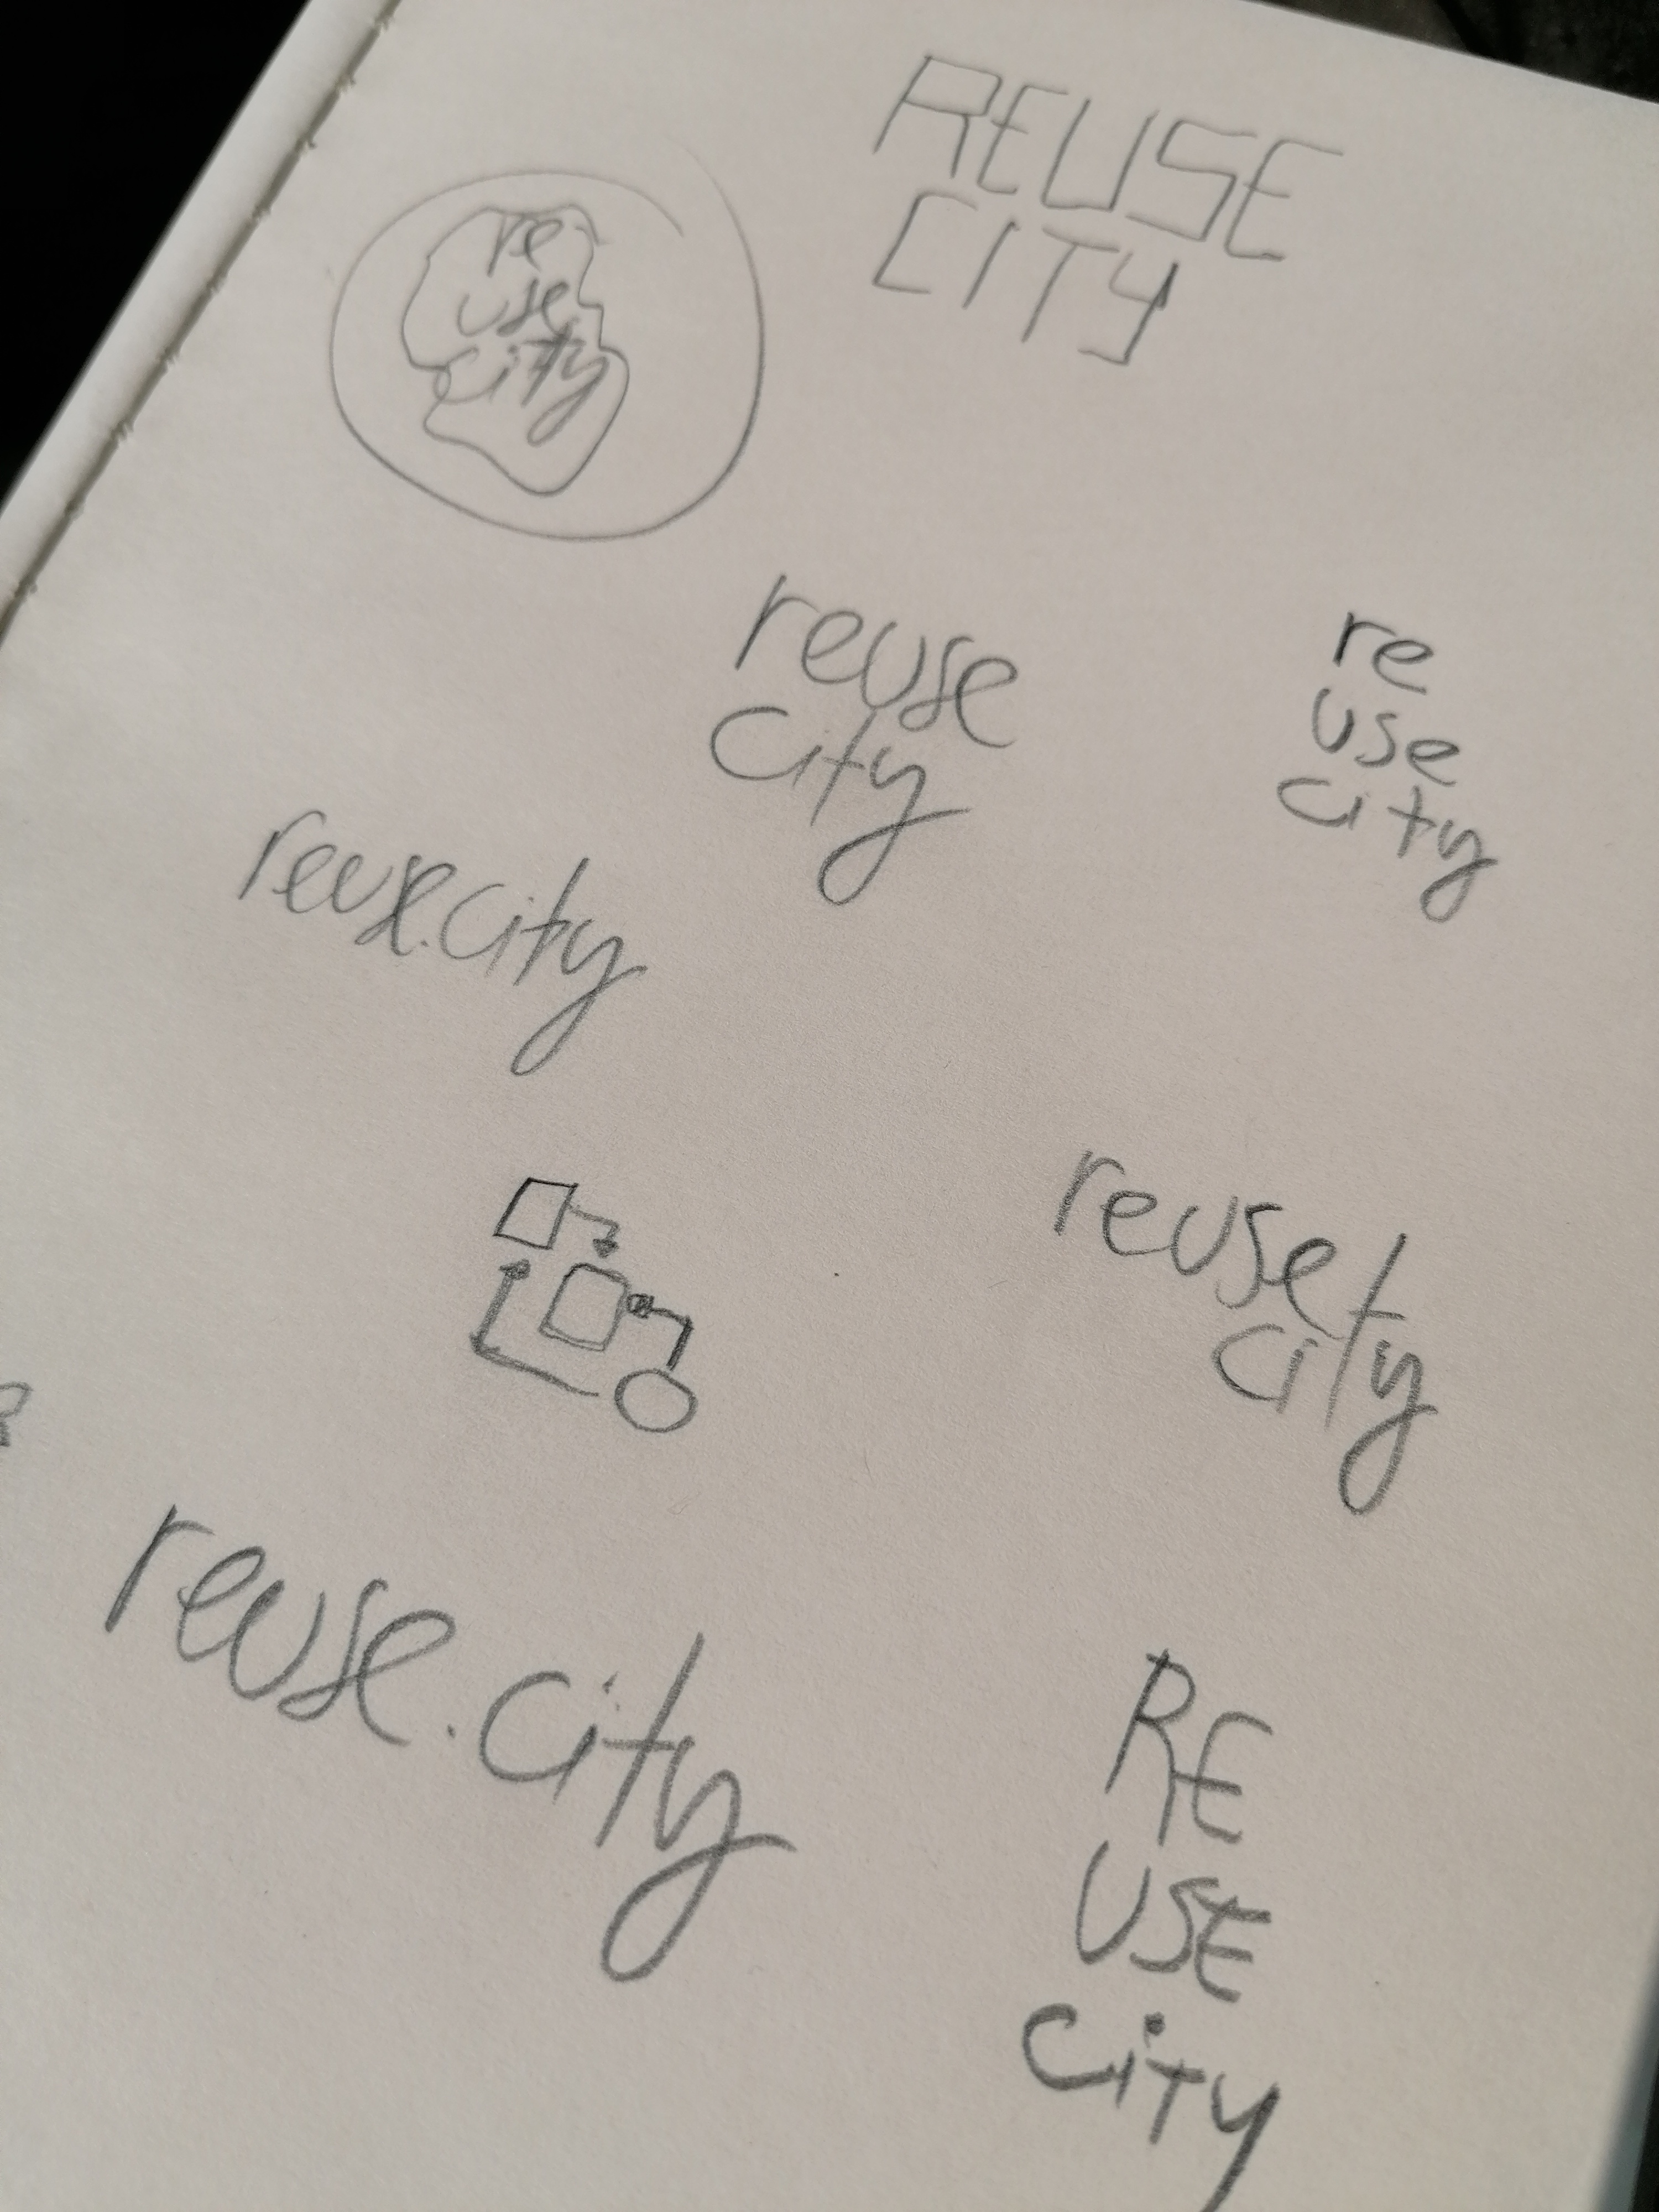 REUSE
CITY
re
use
city
reuse
city
re
use
city
reuse.city
reuse
city
reuse.city
RE
USE
CiTY